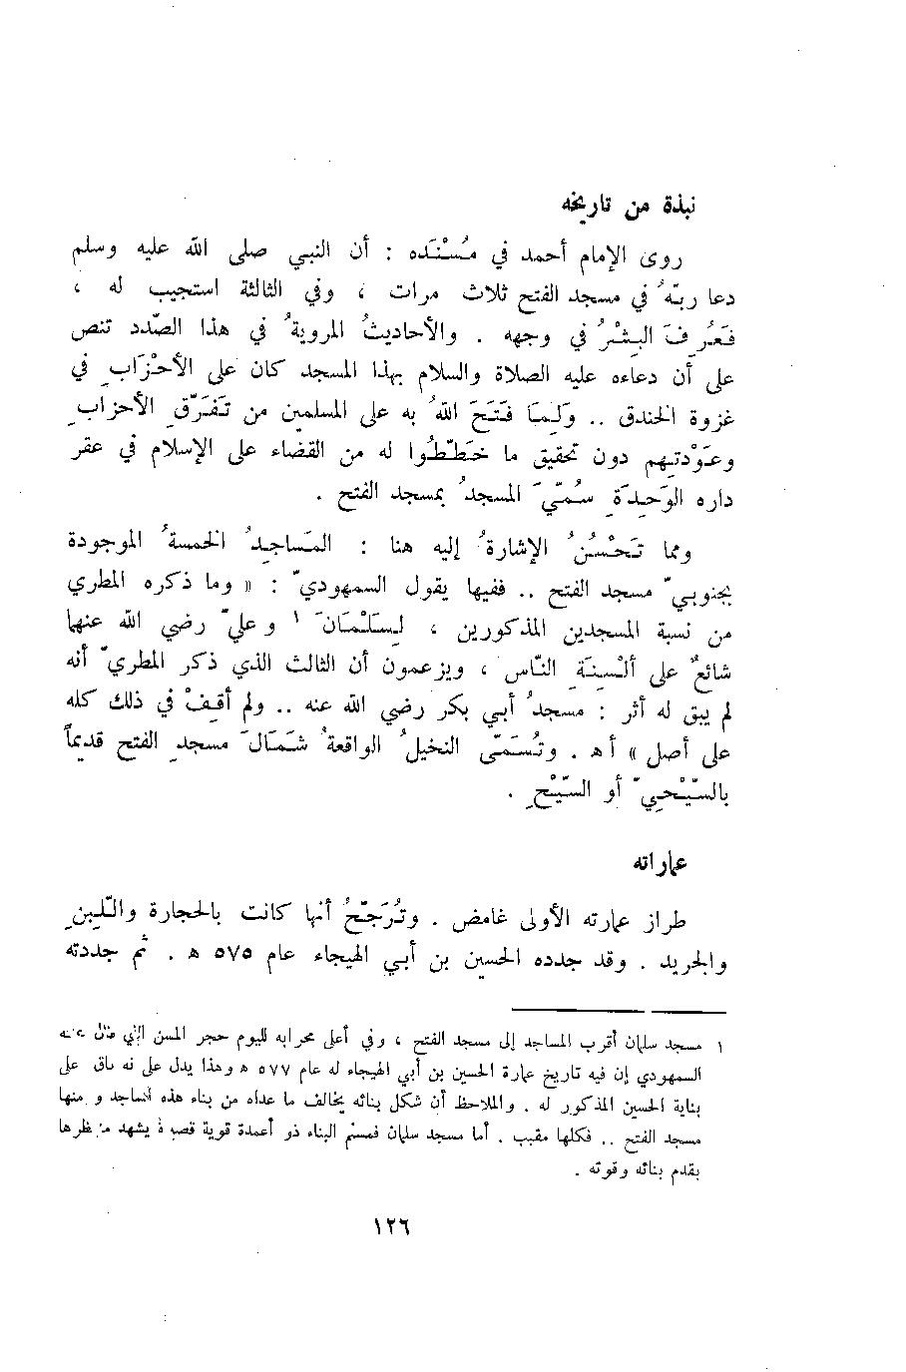 نبذة من تاريخه
روى الإمام أحمد في مُسْنَده : أن النبي صلى الله عليه وسلم
دعا ربّهُ في مسجد الفتح ثلاث مرات ، وفي الثالثة استجيب له ،
فَعُرِفَ البِشْرُ في وجهه . والأحاديثُ المرويةُ في هذا الصّدد تنص
على أن دعاءه عليه الصلاة والسلام بهذا المسجد كان على الأحْزَابِ في
غزوة الخندق .. وَلِمَا فَتَحَ اللهُ به على المسلمين من تَفَرّقِ الأحزابِ
وعَوْدتِهم دون تحقيق ما خَطّطُوا له من القضاء على الإسلام في عقر
داره الوَحِيدَةِ سُمّيَ المسجدُ بمسجد الفتح .
ومما تَحْسُنُ الإشارةُ إليه هنا : المَساجِدُ الخمسةُ الموجودة
بجنوبيّ مسجد الفتح .. ففيها يقول السمهوديّ : « وما ذكره المطري
من نسبة المسجدين المذكورين ، لِسَلْمَانَ ١ وعليّ رضي الله عنهما
شائعٌ على ألْسِنَةِ النّاس ، ويزعمون أن الثالث الذي ذكر المطريّ أنه
لم يبق له أثر : مسجدُ أبي بكر رضي الله عنه .. ولم أقِفْ في ذلك كله
على أصل » أ ه . وتُسَمّى النخيلُ الواقعةُ شَمَالَ مسجدِ الفتح قديماً
بالسّيْحِيّ أو السّيْحِ .
عماراته
طراز عمارته الأولى غامض . وتُرَجّحُ أنها كانت بالحجارة واللّبِنِ
والجريد . وقد جدده الحسين بن أبي الهيجاء عام ٥٧٥ ه . ثم جددته
١ مسجد سلمان أقرب المساجد إلى مسجد الفتح ، وفي أعلى محرابه لليوم حجر المسن الذي قال عنه
السمهودي إن فيه تاريخ عمارة الحسين بن أبي الهيجاء له عام ٥٧٧ ه وهذا يدل على أنه باق على
بناية الحسين المذكور له . والملاحظ أن شكل بنائه يخالف ما عداه من بناء هذه المساجد ومنها
مسجد الفتح .. فكلها مقبب . أما مسجد سلمان فمسنم البناء ذو أعمدة قوية قصيرة يشهد منظرها
بقدم بنائه وقوته .
١٢٦